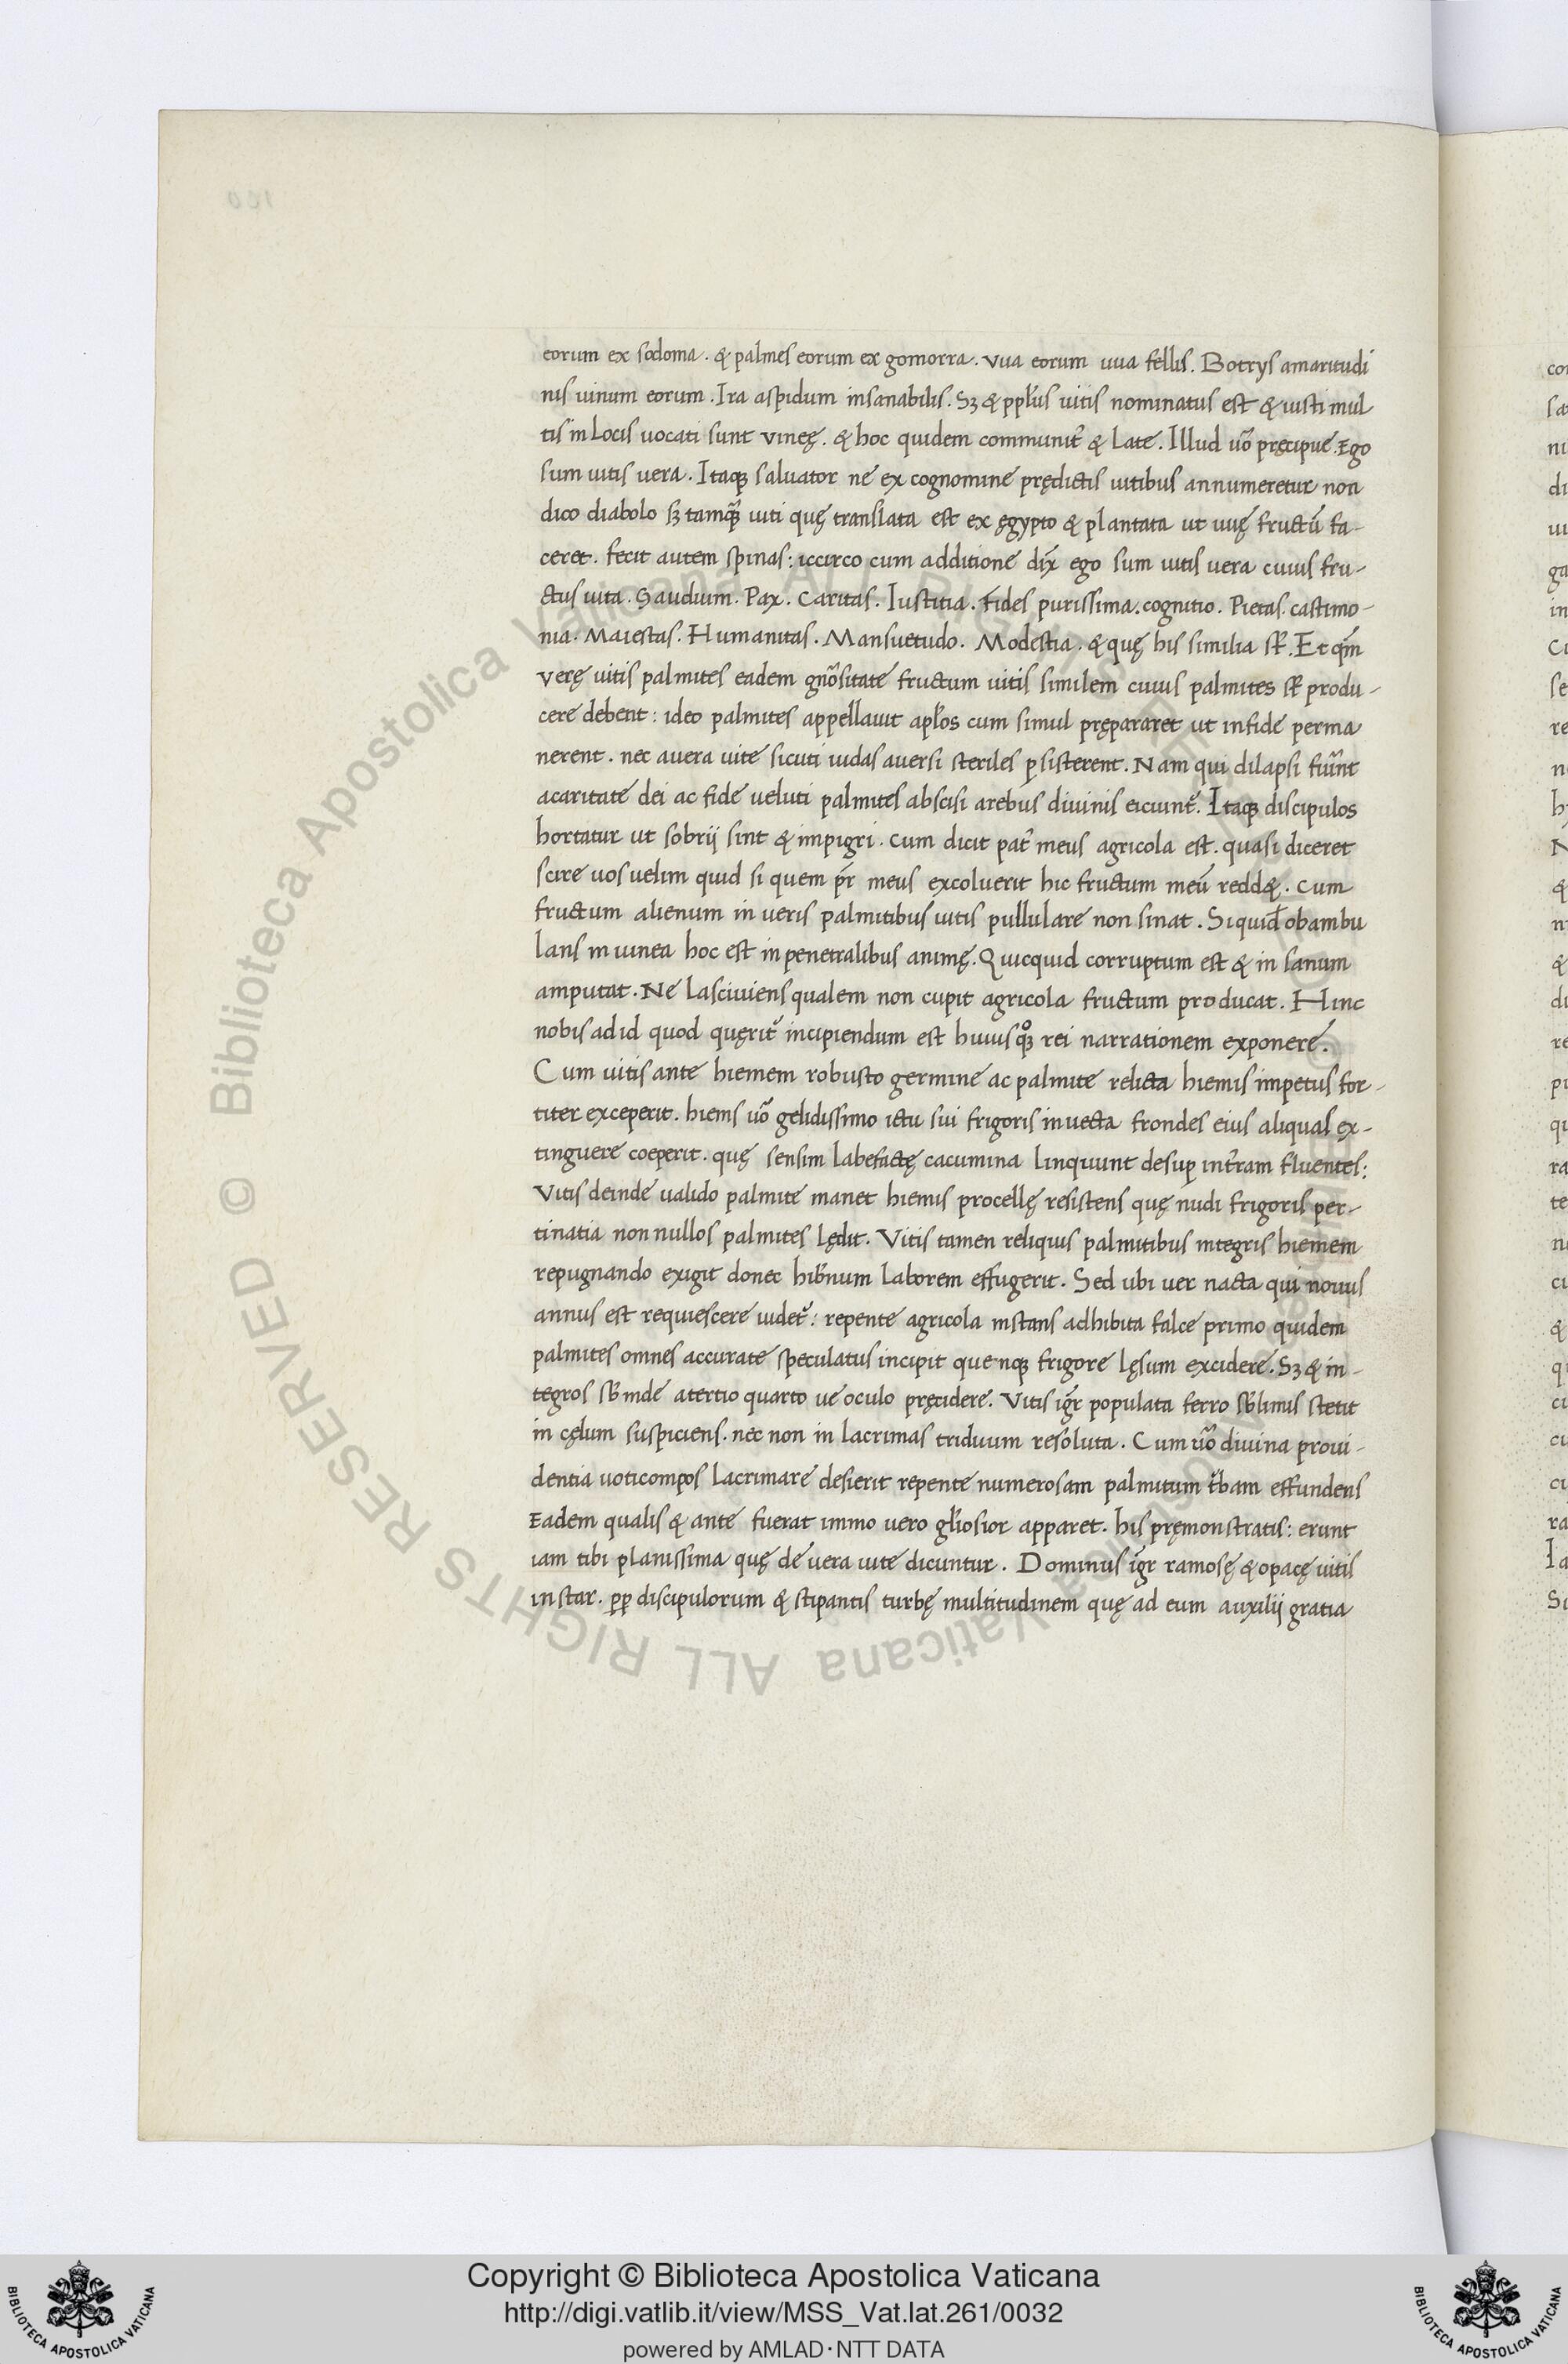 eorum ex sodoma. & palmes eorum ex gomorra. vua eorum uua fellis. Botrys amaritudi
nis uinum eorum. Ira aspidum insanabilis. Sꝫ & ppłus uitis nominatus est & iusti mul
tis in Locis uocati sunt vineę. & hoc quidem communit᷑ & Late. Illud uõ pręcipue. Ego
sum uitis vera. Itaqꝫ saluator ne ex cognomine prędictis uitibus annumeretur non
dico diabolo sꝫ tamq̃ꝫ uiti quę translata est ex ęgypto & plantata ut uuę fructũ fa-
ceret. fecit autem spinas: iccirco cum additione dix̃ ego sum uitis uera cuius fru-
ctus uita. Gaudium. Pax. Caritas. Iustitia. Fides purissima. cognitio. Pietas. castimo-
nia. Maiestas. Humanitas. Mansuetudo. Modestia. & quę his similia st̃. Et qm̃
verę uitis palmites eadem gñositate fructum uitis similem cuius palmites st̃ produ-
cere debent: ideo palmites appellauit apłos cum simul prępararet ut infide perma
nerent. nec auera uite sicuti iudas auersi steriles ꝑsisterent. Nam qui dilapsi fuı̃nt
acaritate dei ac fide ueluti palmites abscisi arebus diuinis eiciunt᷑. Itaqꝫ discipulos
hortatur ut sobrij sint & impigri. cum dicit pat᷑ meus agricola est. quasi diceret
scire uos uelim quid si quem pr̃ meus excoluerit hic fructum meũ redd&. Cum
fructum alienum in ueris palmitibus uitis pullulare non sinat. Siquid̃ obambu
lans in uinea hoc est in penetralibus animę. Quicquid corruptum est & in sanum
amputat. Ne Lasciuiens qualem non cupit agricola fructum producat. Hinc
nobis ad id quod quęrit᷑ incipiendum est huiusqꝫ rei narrationem exponere.
Cum uitis ante hiemem robusto germine ac palmite relicta hiemis impetus for-
titer exceperit. hiems uõ gelidissimo ictu sui frigoris inuecta frondes eius aliquas ex-
tinguere coeperit. quę sensim Labefactę cacumina Linquunt desuꝑ int̃ram fluentes:
Vitis deinde ualido palmite manet hiemis procellę resistens quę nudi frigoris per-
tinatia non nullos palmites lędit. Vitis tamen reliquis palmitibus integris hiemem
repugnando exigit donec hib̃num Laborem effugerit. Sed ubi uer nacta qui nouus
annus est requiescere uidet᷑: repente agricola instans adhibita falce primo quidem
palmites omnes accurate speculatus incipit quenqꝫ frigore lęsum excidere. Sꝫ & in-
tegros sb̃inde atertio quarto ue oculo pręcidere. Vitis igr̃ populata ferro sb̃limis stetit
in cęlum suspiciens. nec non in lacrimas triduum resoluta. Cum uõ diuina proui-
dentia uoticompos Lacrimare desierit repente numerosam palmitum t᷑bam effundens
Eadem qualis & ante fuerat immo uero głiosior apparet. his pręmonstratis: erunt
iam tibi planissima quę de uera uite dicuntur. Dominus igr̃ ramosę & opacę uitis
instar. ꝓꝑ discipulorum & stipantis turbę multitudinem quę ad eum auxilij gratia
Copyright © Biblioteca Apostolica Vaticana
http://digi.vatlib.it/view/MSS_Vat.lat.261/0032
powered by AMLAD·NTT DATA